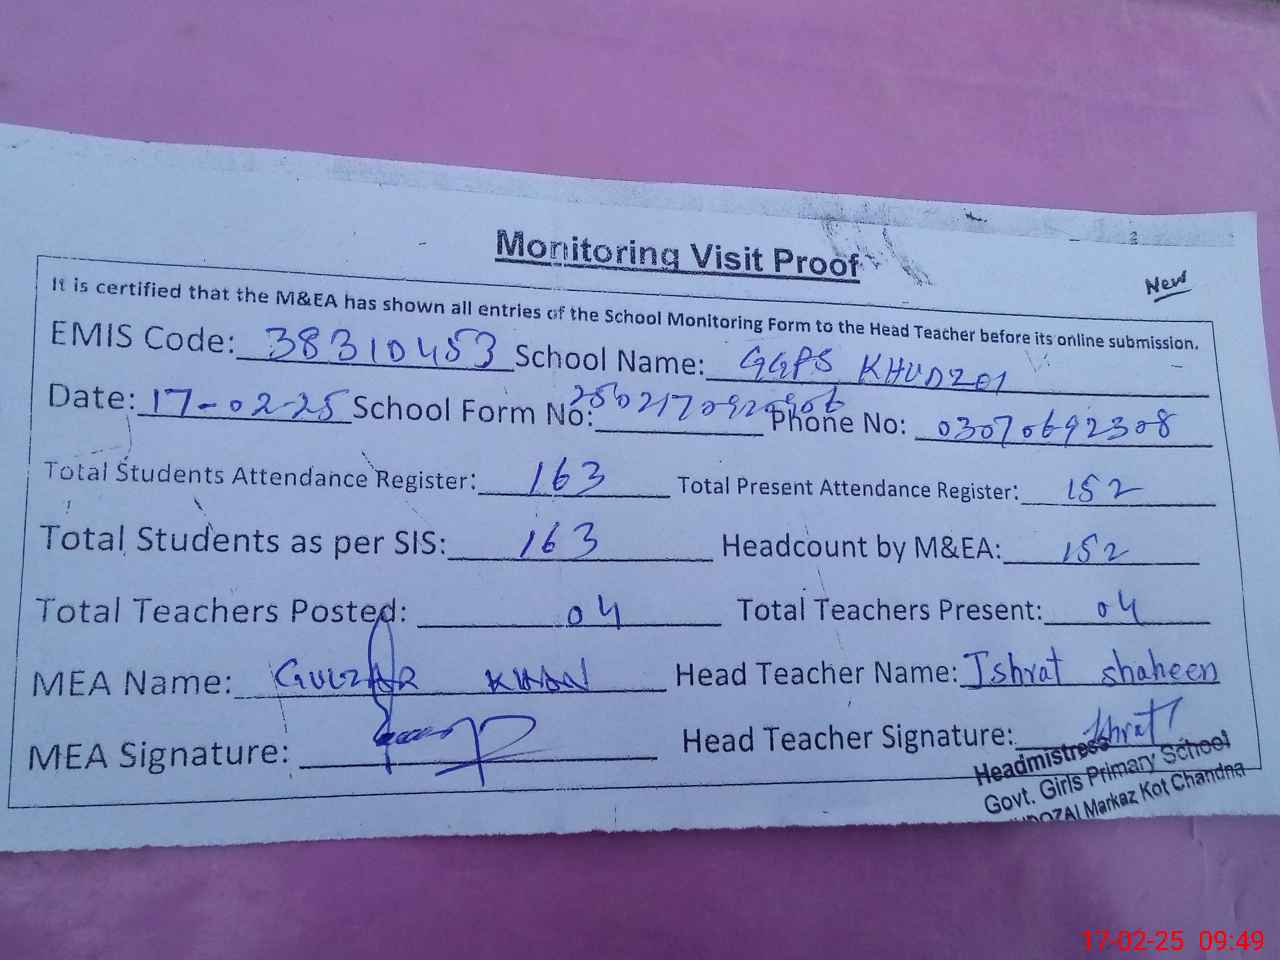 Monitoring Visit Proof
New
It is certified that the M&EA has shown all entries of the School Monitoring Form to the Head Teacher before its online submission.
EMIS Code: 38310453 School Name: GGPS KHUDZ01
Date: 17-02-25 School Form No: Phone No: 03070692308
Total Students Attendance Register: 163 Total Present Attendance Register: 152
Total Students as per SIS: 163 Headcount by M&EA: 152
Total Teachers Posted: 04 Total Teachers Present: 04
MEA Name: GULZAR KHAN Head Teacher Name: Ishrat shaheen
MEA Signature: Head Teacher Signature: Ishrat
Headmistress
Govt. Girls Primary School
Markaz Kot Chandna
17-02-25 09:49